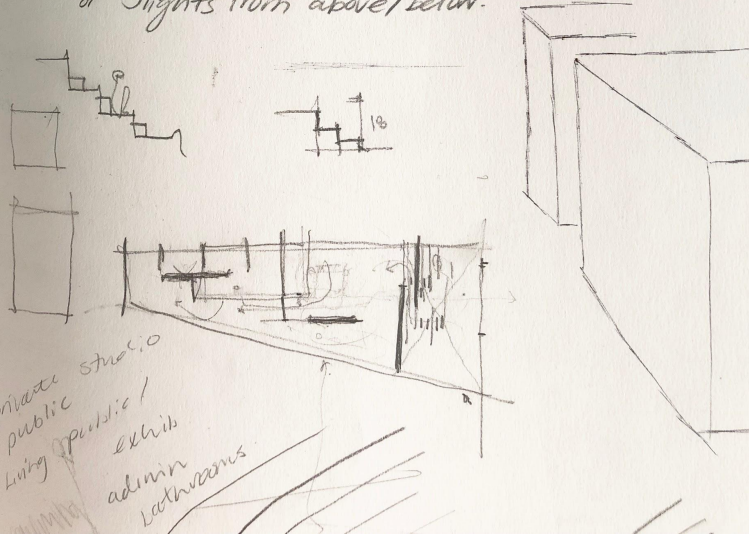 or slights from above/below.
18
private studio
public
Living public/
exhib
admin
bathrooms